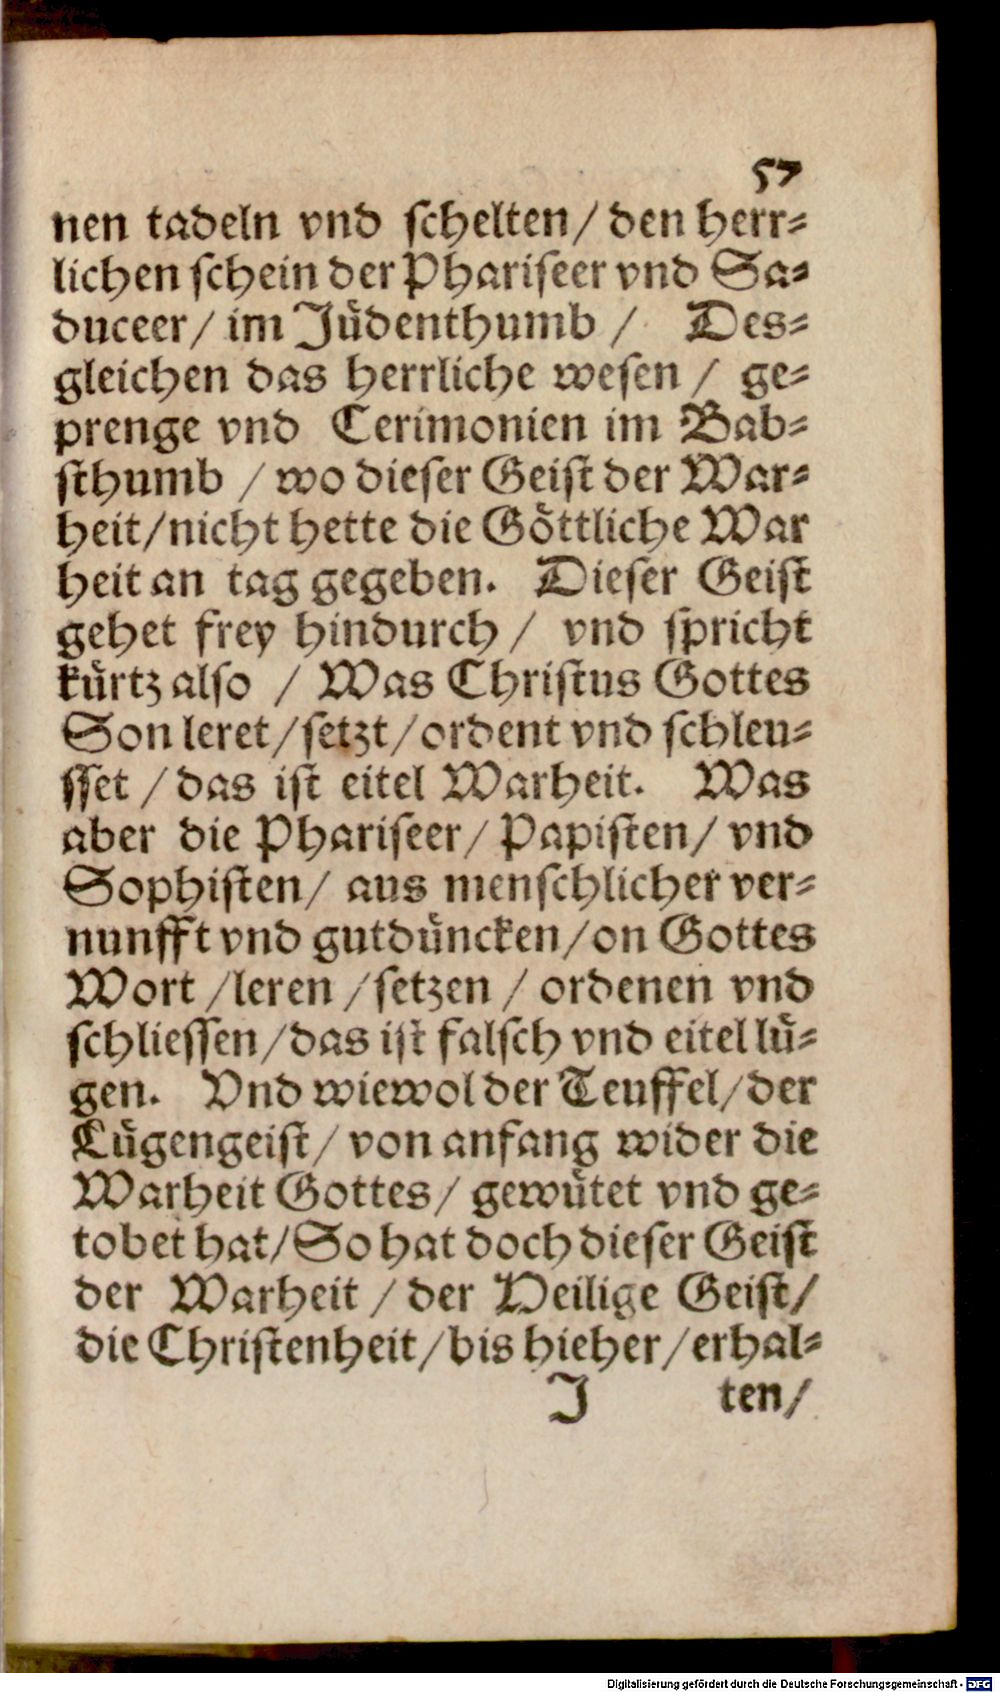 57
nen tadeln vnd schelten/ den herr-
lichen schein der Phariseer vnd Sa-
duceer/ im Jüdenthumb / Des-
gleichen das herrliche wesen / ge-
prenge vnd Cerimonien im Bab-
sthumb / wo dieser Geist der War-
heit/nicht hette die Göttliche War
heit an tag gegeben. Dieser Geist
gehet frey hindurch / vnd spricht
kürtz also / Was Christus Gottes
Son leret/setzt/ordent vnd schleu-
sset / das ist eitel Warheit. Was
aber die Phariseer/ Papisten/ vnd
Sophisten/ aus menschlicher ver-
nunfft vnd gutdüncken/on Gottes
Wort /leren /setzen / ordenen vnd
schliessen/das ist falsch vnd eitel lü-
gen. Vnd wiewol der Teuffel/der
Lügengeist/ von anfang wider die
Warheit Gottes/ gewütet vnd ge-
tobet hat/So hat doch dieser Geist
der Warheit / der Heilige Geist/
die Christenheit/bis hieher/erhal-
J ten/
Digitalisierung gefördert durch die Deutsche Forschungsgemeinschaft - DFG